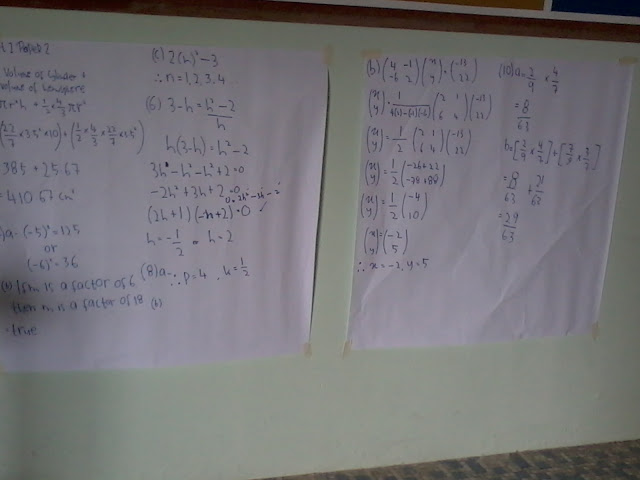 Volume of Cylinder +
Volume of hemisphere
πr²h + 1/2 × 4/3 πr³
385 + 25.67
= 410.67 cm³
a - (-5)² = 125
or
(-6)² = 36
If m is a factor of 6
then m is a factor of 18
true
(c) 2(n)² - 3
∴ n = 1, 2, 3, 4
(6) 3 - h = h² - 2
h
h(3-h) = h² - 2
3h - h² - h² + 2 = 0
-2h² + 3h + 2 = 0
(2h + 1)(-h + 2) = 0
h = -1/2 or h = 2
(8)a - ∴ p = 4, k = 1/2
(b)
(b) (4 -1 / -6 2) (x / y) = (-13 / 22)
(x / y) = 1/4(2)-(-1)(-6) (2 1 / 6 4) (-13 / 22)
(x / y) = 1/2 (2 1 / 6 4) (-13 / 22)
(x / y) = 1/2 (-26+22 / -78+88)
(x / y) = 1/2 (-4 / 10)
(x / y) = (-2 / 5)
∴ x = -2, y = 5
(10)a = 2/9 × 4/7
= 8/63
= 8/63 + 21/63
= 29/63